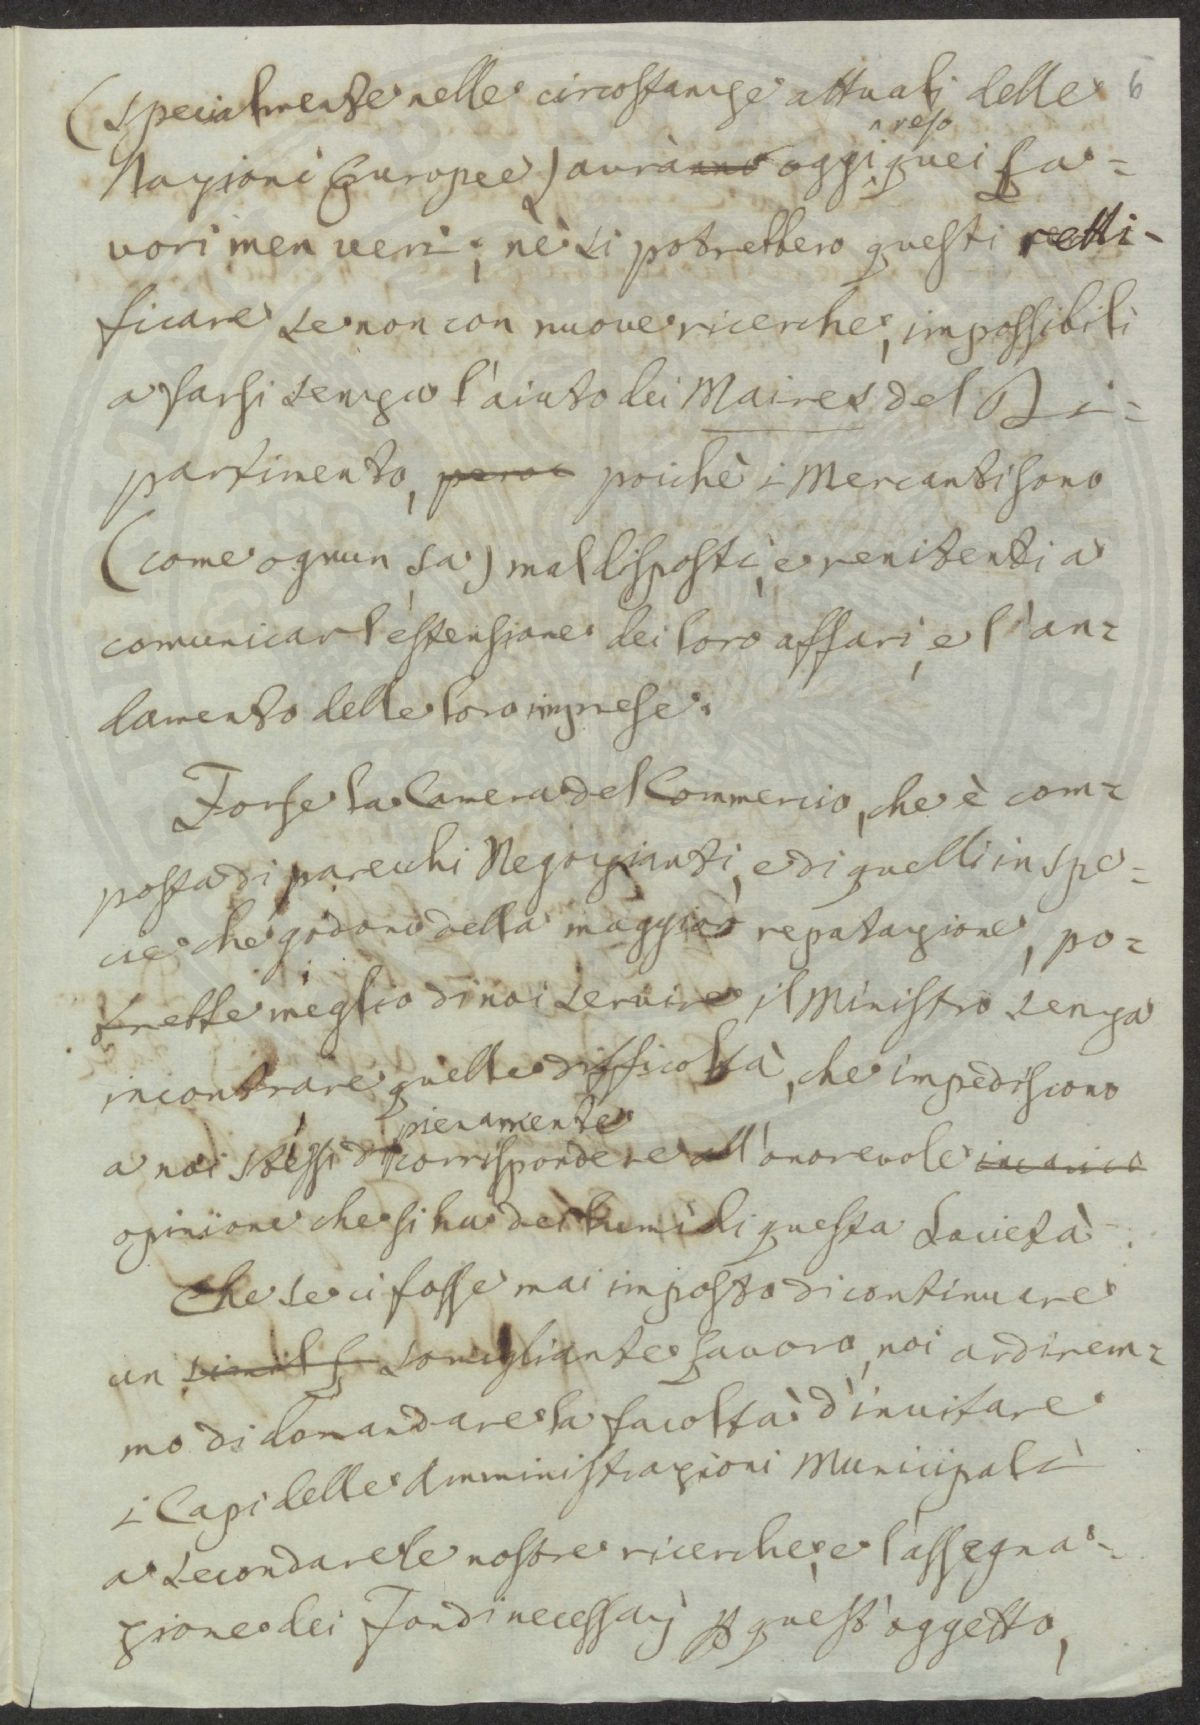 6
(specialmente nelle circostanze attuali delle
^ reso
Nazioni Europee) avrà oggi quei La=
vori men veri; nè si potrebbero questi retti-
ficare se non con nuove ricerche, impossibili
a farsi senza l'aiuto dei Maires del Di=
partimento, poichè i Mercanti sono
(come ognun sa) mal disposti, e renitenti a
comunicar l'estensione dei loro affari, e l'an=
damento delle loro imprese.
Forse la Camera del Commercio, che è com=
posta di parecchi Negozianti, e di quelli in spe=
cie che godono della maggior reputazione, po=
trebbe meglio di noi servire il Ministro senza
incontrare quelle difficoltà, che impediscono
pienamente
a noi stessi di corrispondere all'onorevole incarico
opinione che si ha dei lumi di questa Società.
Che se ci fosse mai imposto di continuare
un somigliante lavoro, noi ardirem=
mo di domandare la facoltà d'invitare
i Capi delle Amministrazioni Municipali
a secondare le nostre ricerche, e l'assegna=
zione dei Fondi necessarj p quest'oggetto,